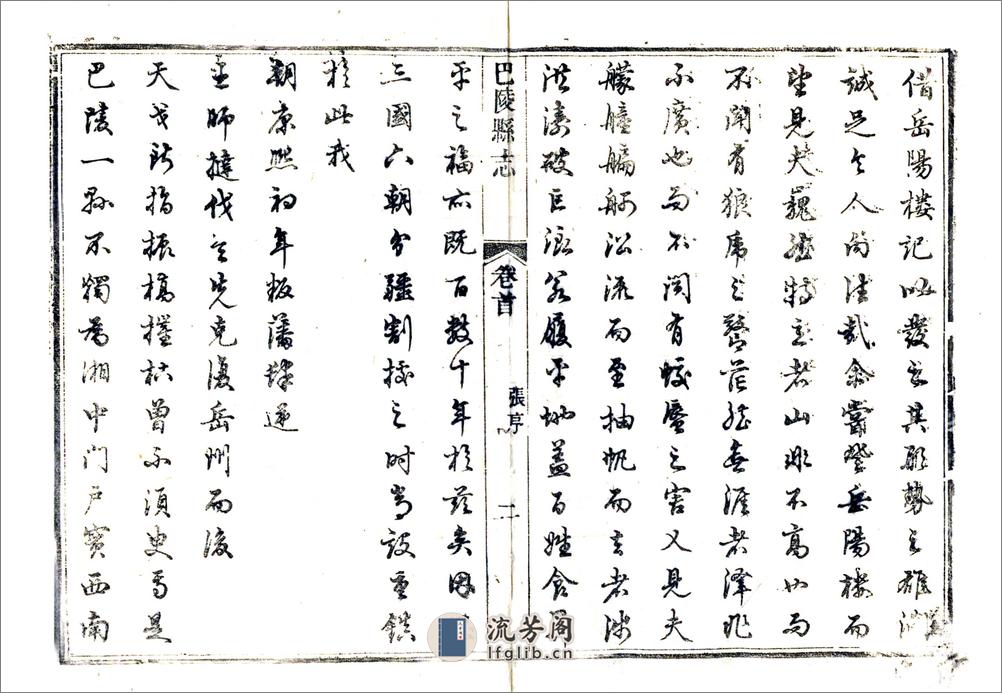 借岳陽樓記以發之其形勢之雄
誠足令人向往哉余嘗登岳陽樓而
望見夫巍然特立者山非不高也而
不聞有狼虎之驚茫然無涯者澤非
不廣也而不聞有蛟蜃之害又見夫
艨艟艑舸沿流而至抽帆而去者涉
洪濤破巨浪若履平地蓋百姓食昇
巴陵縣志 卷首 張序 二
平之福亦既百數十年於茲矣因
三國六朝分疆割據之時嘗設重鎮
於此我
朝康熙初年叛藩肆逆
王師撻伐先克復岳州而後
天戈所指振槁摧枯曾不須臾焉是
巴陵一縣不獨為湘中門戶實西南
流芳阁
lfglib.cn